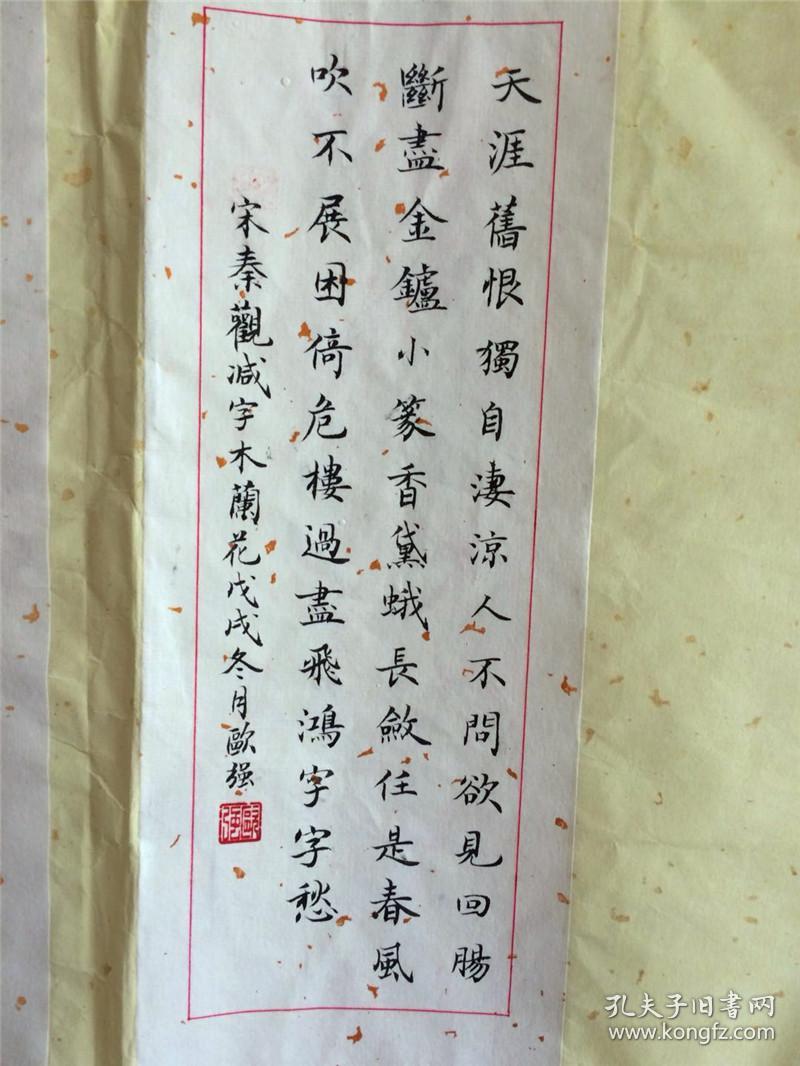 天涯舊恨獨自淒涼人不問欲見回腸
斷盡金鑪小篆香黛蛾長斂任是春風
吹不展困倚危樓過盡飛鴻字字愁
宋秦觀減字木蘭花戊戌冬月歐强
孔夫子旧書网
www.kongfz.com